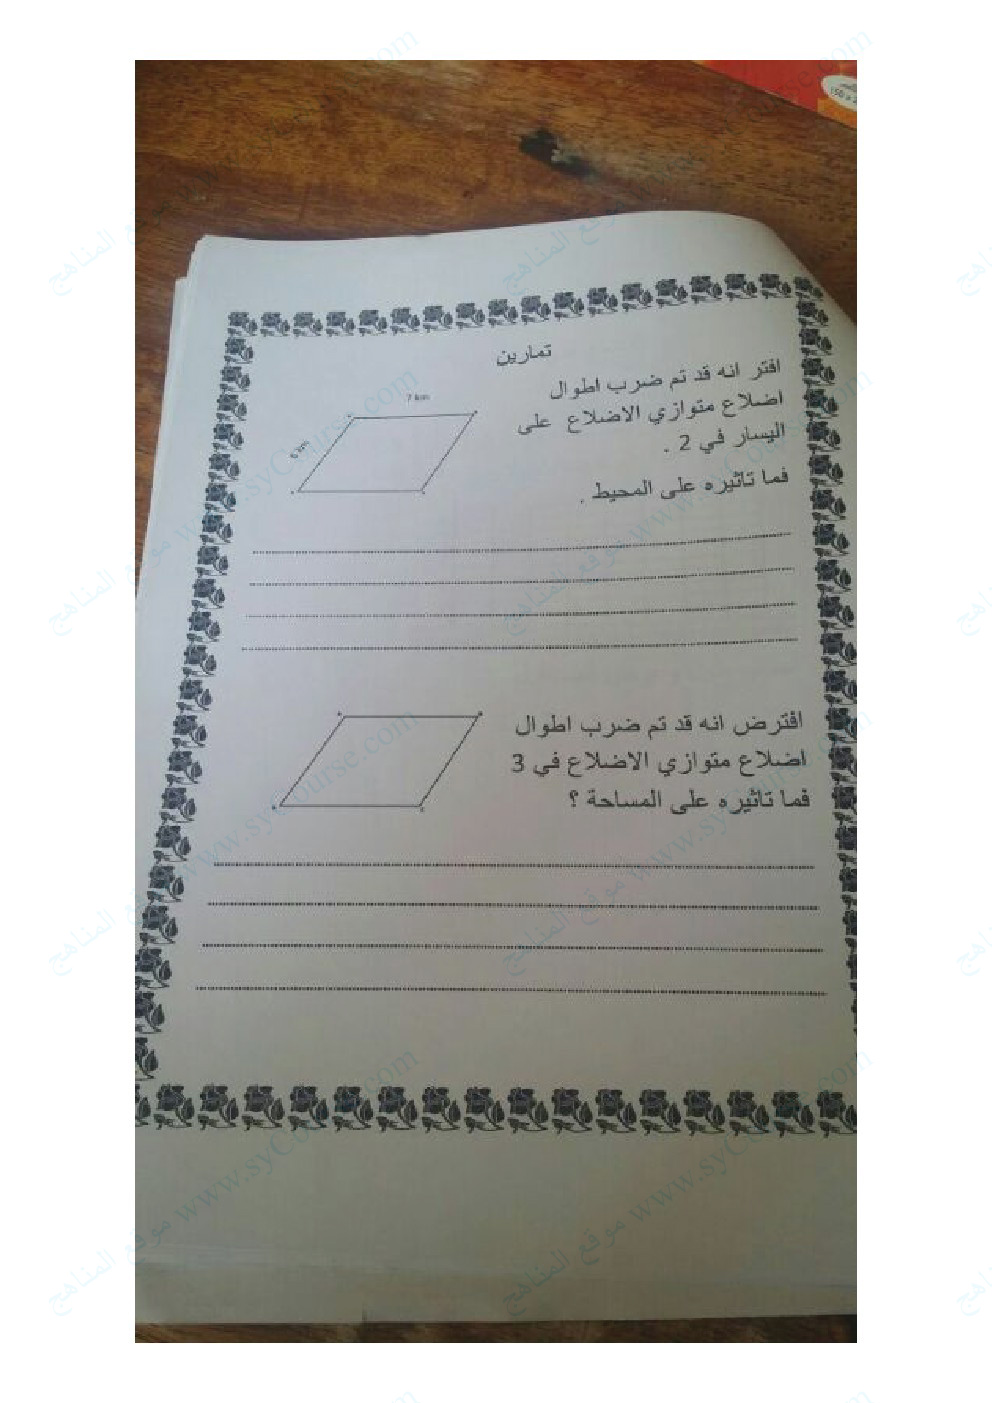 تمارين
افتر انه قد تم ضرب اطوال
اضلاع متوازي الاضلاع على
اليسار في 2 .
فما تاثيره على المحيط .
7 km
افترض انه قد تم ضرب اطوال
اضلاع متوازي الاضلاع في 3
فما تاثيره على المساحة ؟
موقع المناهج www.syCourse.com